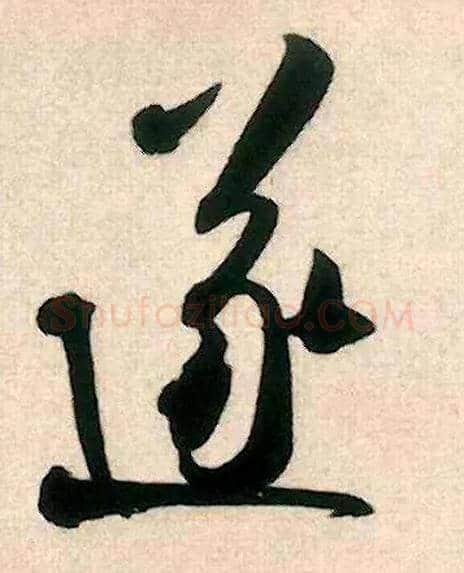 遂
Shufaziliao.COM